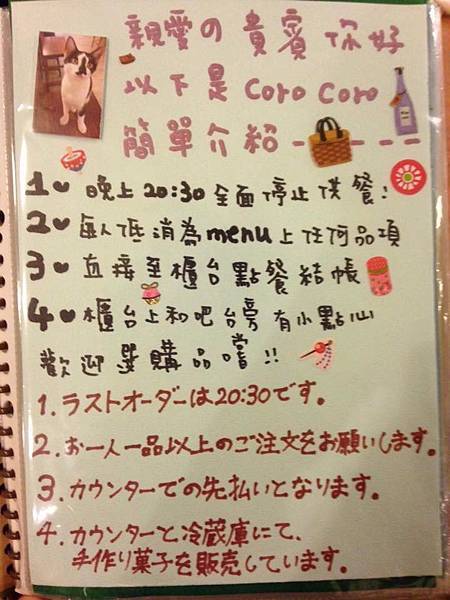 親愛の貴賓你好
以下是 coro coro
簡單介紹-----
1♥ 晚上20:30全面停止供餐!
2♥ 每人低消為menu上任何品項
3♥ 直接至櫃台點餐結帳
4♥ 櫃台上和吧台旁有小點心
歡迎選購品嚐!!
1. ラストオーダーは20:30です。
2. お一人一品以上のご注文をお願いします。
3. カウンターでの先払いとなります。
4. カウンターと冷蔵庫にて、
手作り菓子を販売しています。